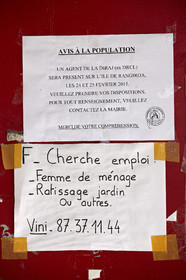 AVIS À LA POPULATION
UN AGENT DE LA DIRAJ (ex DRCL)
SERA PRESENT SUR L'ILE DE RANGIROA,
LES 24 ET 25 FÉVRIER 2015.
VEUILLEZ PRENDRE VOS DISPOSITIONS.
POUR TOUT RENSEIGNEMENT, VEUILLEZ
CONTACTEZ LA MAIRIE.
MERCI DE VOTRE COMPREHENSION.
F_ Cherche emploi :
- Femme de ménage
- Ratissage jardin
Ou autres.
Vini : 87.37.11.44